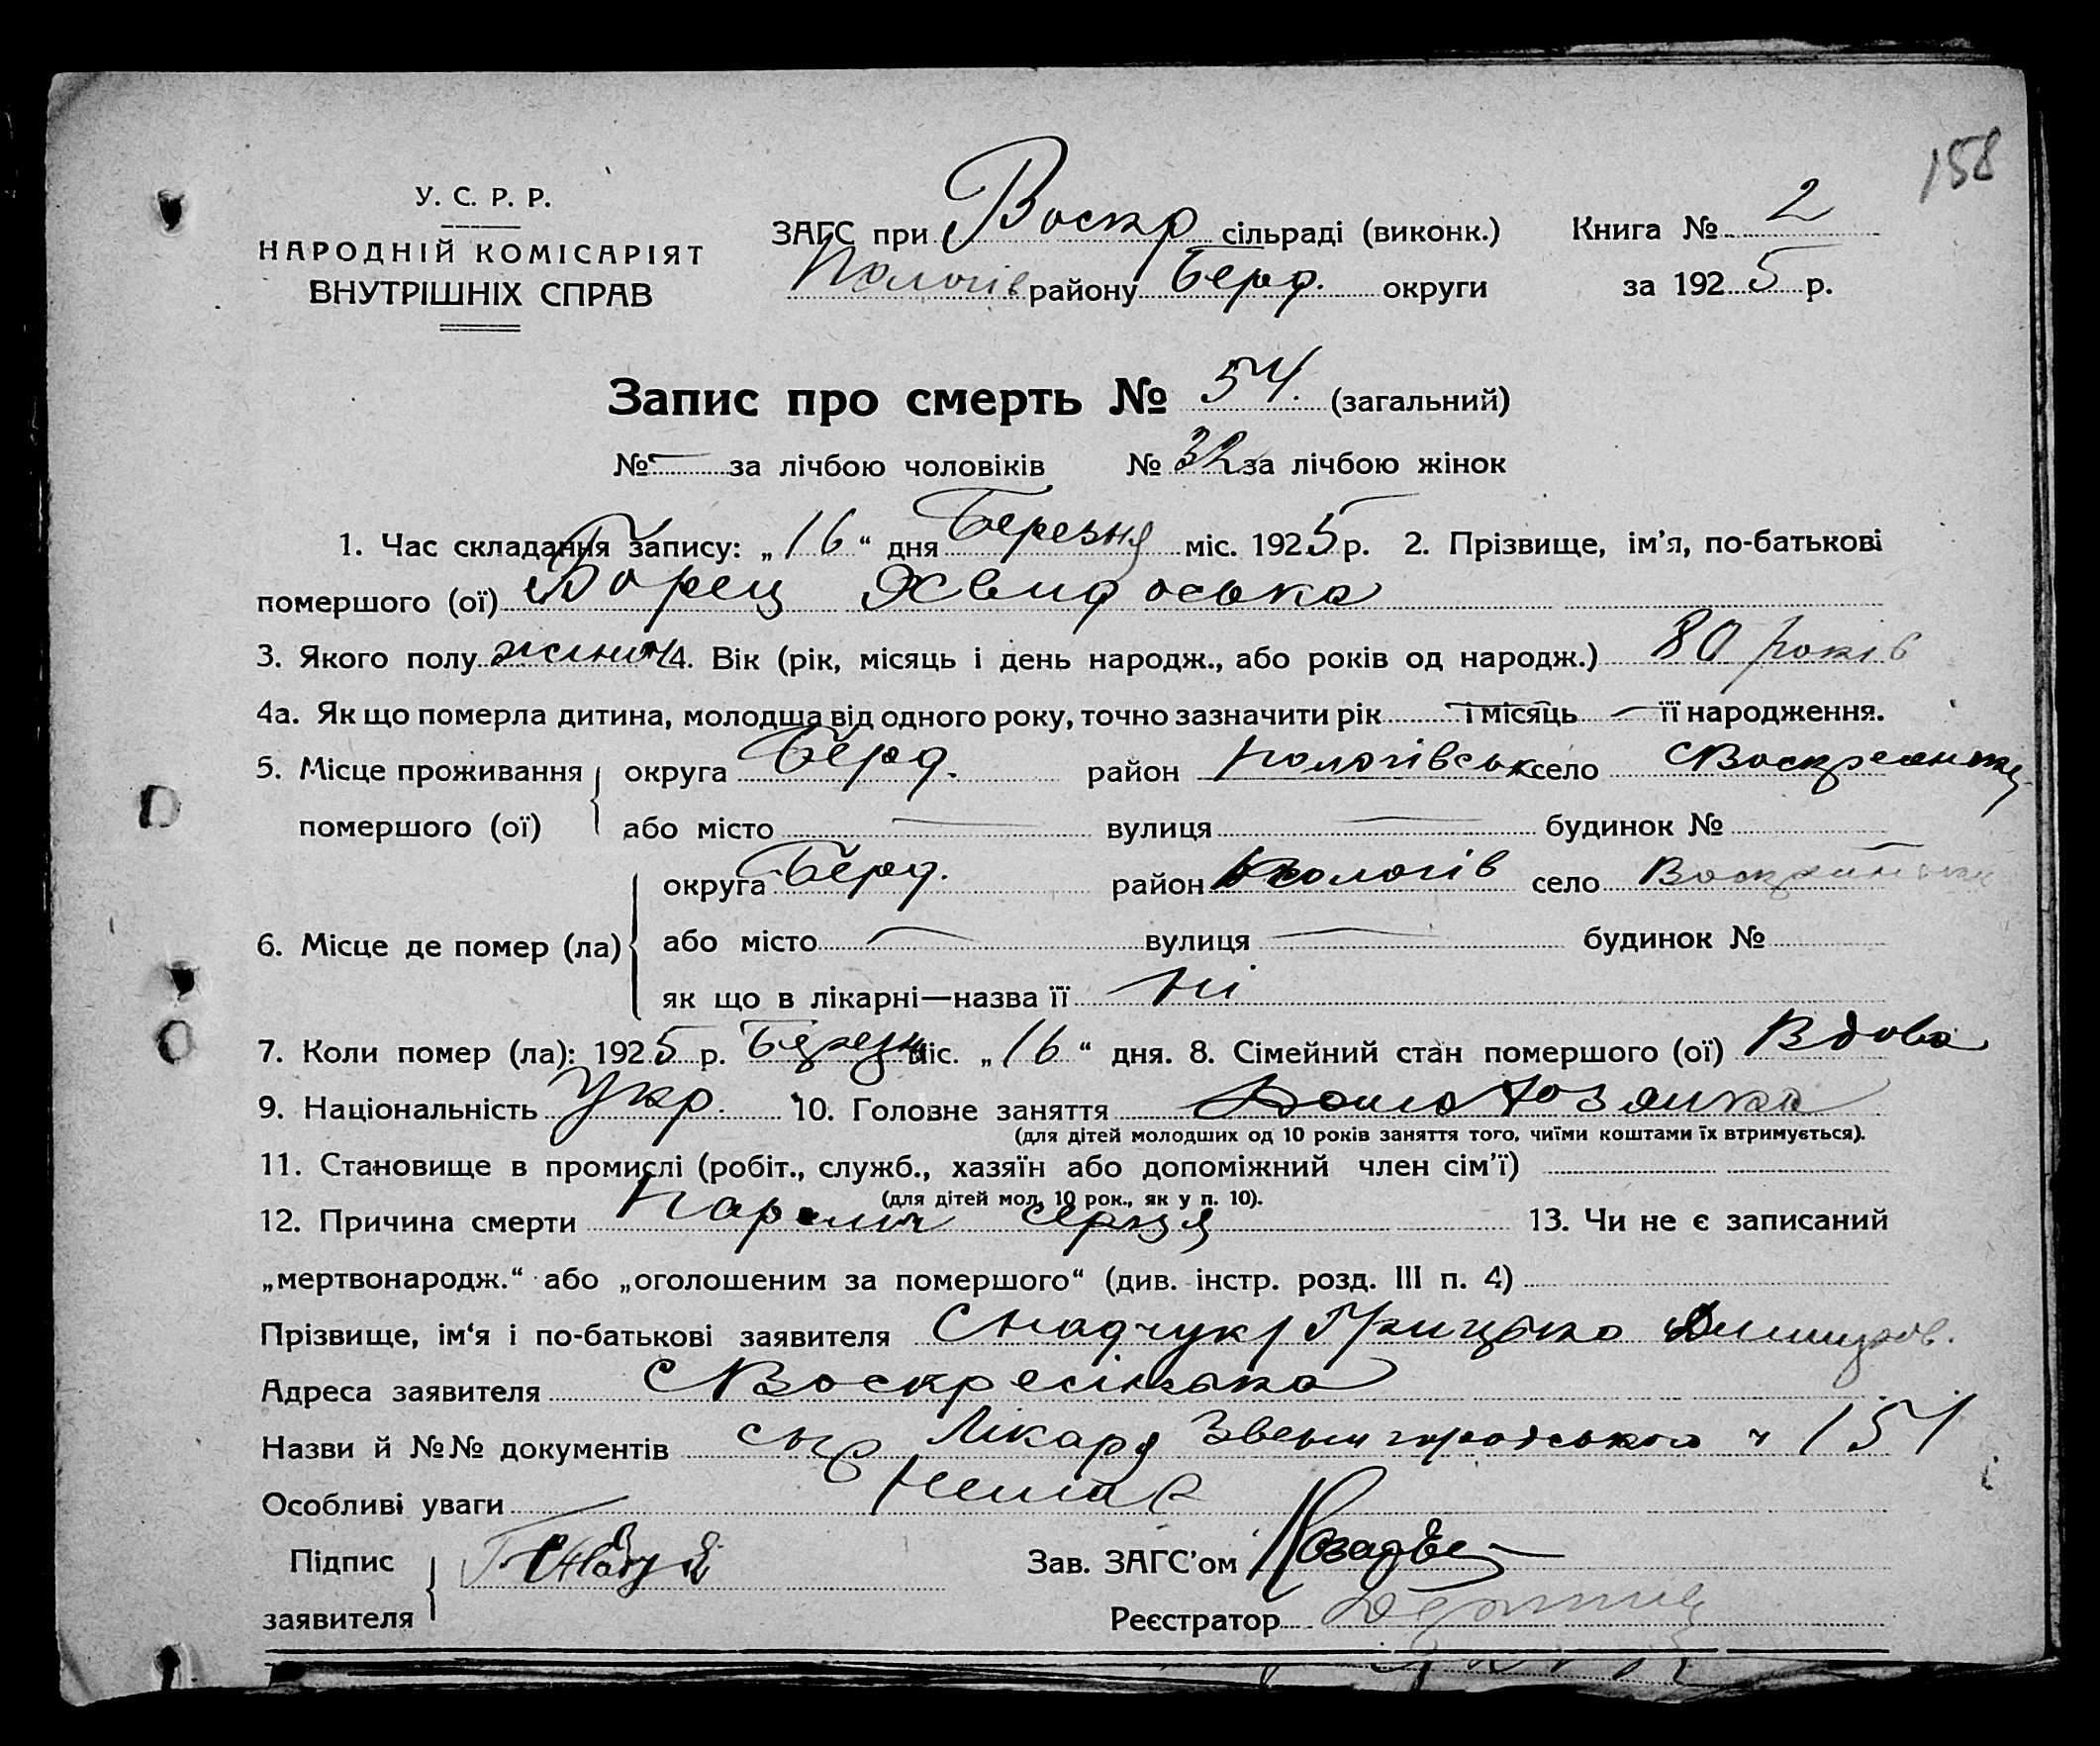 158
У. С. Р. Р.
НАРОДНІЙ КОМІСАРІЯТ
ВНУТРІШНІХ СПРАВ
ЗАГС при Воскр сільраді (виконк.)
Пологів району Берд. округи
Книга № 2
за 1925 р.
Запис про смерть № 54. (загальний)
№ — за лічбою чоловіків № 32 за лічбою жінок
1. Час складання запису: „16“ дня Березня міс. 1925 р. 2. Прізвище, ім'я, по-батькові
помершого (ої)
3. Якого полу жіноч 4. Вік (рік, місяць і день народж., або років од народж.) 80 років
4а. Як що померла дитина, молодща від одного року, точно зазначити рік — і місяць — її народження.
5. Місце проживання помершого (ої) округа Берд. район Пологівськ село
або місто — вулиця — будинок №
6. Місце де помер (ла) округа Берд. район Пологів село
або місто — вулиця — будинок № —
як що в лікарні—назва її Ні
7. Коли помер (ла): 1925 р. Березн міс. „16“ дня. 8. Сімейний стан помершого (ої) Вдова
9. Національність Укр. 10. Головне заняття
(для дітей молодших од 10 років заняття того, чиїми коштами їх втримується).
11. Становище в промислі (робіт., служб., хазяїн або допоміжний член сім'ї)
(для дітей мол. 10 рок., як у п. 10).
12. Причина смерти Параліч серця 13. Чи не є записаний
„мертвонародж.“ або „оголошеним за помершого“ (див. інстр. розд. III п. 4)
Прізвище, ім'я і по-батькові заявителя Грицько
Адреса заявителя с Воскресінська
Назви й №№ документів Лікаря Звенигородського ч 151
Особливі уваги Немає
Підпис заявителя
Зав. ЗАГС'ом
Реєстратор